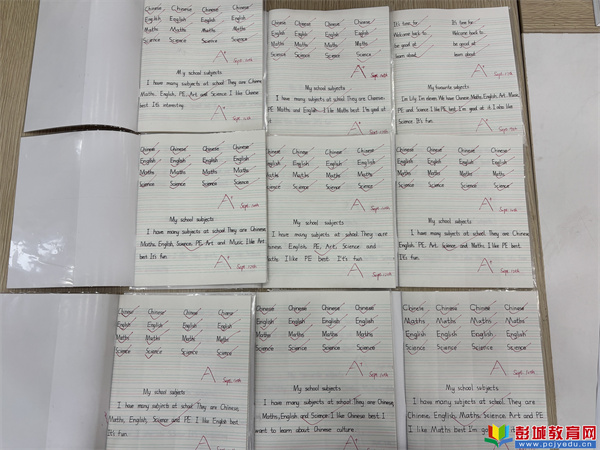 Chinese Chinese Chinese Chinese
English English English English
Maths Maths Maths Maths
Science Science Science Science
A+
Sept. 10th
My school subjects
I have many subjects at school. They are Chinese,
Maths, English, PE, Art and Science. I like Chinese
best. It's interesting.
Chinese Chinese Chinese Chinese
English English English English
Maths Maths Maths Maths
Science Science Science Science
A+
My school subjects
I have many subjects at school. They are Chinese,
PE, Maths and English. I like Maths best. I'm good at
it.
It's time for It's time for
Welcome back to Welcome back to
be good at be good at
learn about learn about
A+
My favourite subjects
I'm Lily. I'm eleven. We have Chinese, Maths, English, Art, Music,
PE and Science. I like PE best. I'm good at it. I also like
Science. It's fun.
A+
Chinese Chinese Chinese Chinese
English English English English
Maths Maths Maths Maths
Science Science Science Science
A+
Sept. 10th
My school subjects
I have many subjects at school. They are Chinese,
Maths, English, Science, PE, Art and Music. I like Art
best. It's fun.
A+
Sept. 10th
Chinese Chinese Chinese Chinese
English English English English
Maths Maths Maths Maths
Science Science Science Science
A+
Sept. 10th
My school subjects
I have many subjects at school. They are
Chinese, English, PE, Art, Science and
Maths. I like PE best. It's fun.
A+
Sept. 10th
Chinese Chinese Chinese Chinese
English English English English
Maths Maths Maths Maths
Science Science Science Science
A+
Sept. 10th
My school subjects
I have many subjects at school. They are Chinese,
English, PE, Art, Science and Maths. I like PE best.
It's fun.
A+
Sept. 10th
Chinese Chinese Chinese Chinese
English English English English
Maths Maths Maths Maths
Science Science Science Science
A+
Sept. 10th
My school subjects
I have many subjects at school. They are Chinese,
Maths, English, Science and PE. I like English best.
It's fun.
A+
Chinese Chinese Chinese Chinese
English English English English
Maths Maths Maths Maths
Science Science Science Science
A+
Sept. 10th
My school subjects
I have many subjects at school. They are Chinese,
Maths, English and Science. I like Chinese best. I
want to learn about Chinese culture.
A+
Chinese Chinese Chinese Chinese
Maths Maths Maths Maths
English English English English
Science Science Science Science
A+
Sept. 10th
My school subjects
I have many subjects at school. They are
Chinese, English, Maths, Science, Art and PE.
I like Maths best. I'm good
彭城教育网
www.pcjyedu.cn